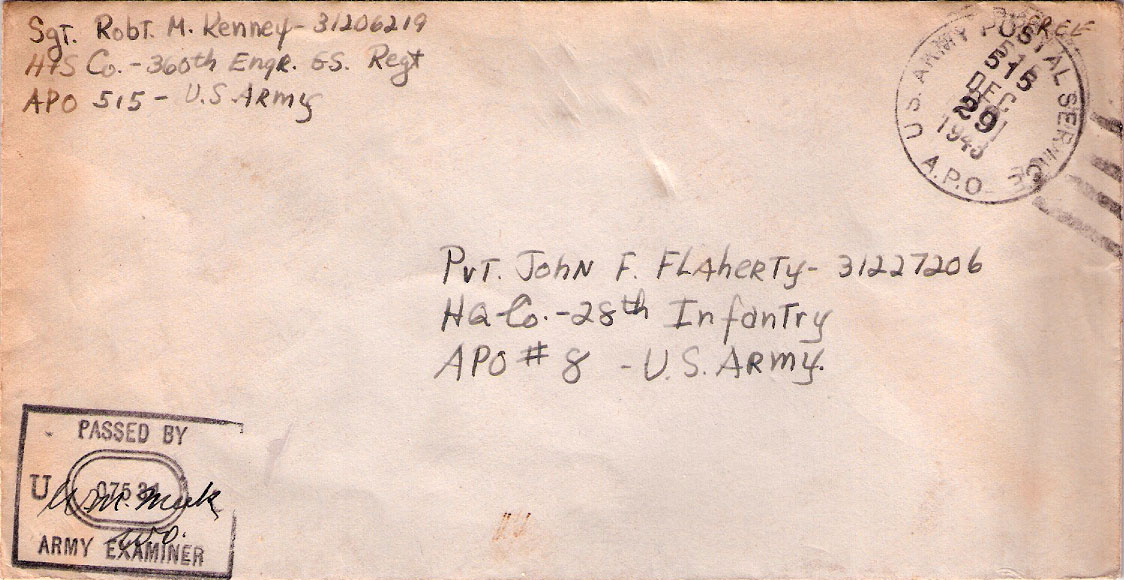 Sgt. Robt. M. Kenney - 31206219
H+S Co. - 360th Engr. GS. Regt
APO 515 - U.S. Army
FREE
U.S. ARMY POSTAL SERVICE
515
DEC
29
1943
A.P.O.
Pvt. John F. Flaherty - 31227206
HQ-Co. - 28th Infantry
APO # 8 - U.S. Army.
PASSED BY
U
ARMY EXAMINER